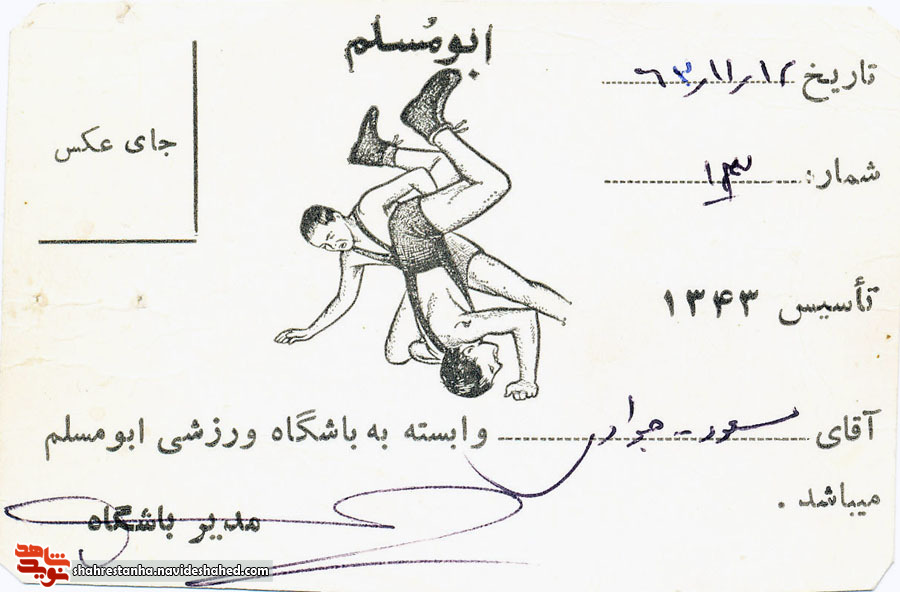 ابومُسلم
تاریخ ۶۳/۱۱/۱۲
جای عکس
شمار: ۱۳
تأسیس ۱۳۴۳
آقای مسعود - جوادی وابسته به باشگاه ورزشی ابومسلم
میباشد .
مدیر باشگاه
نوید شاهد
shahrestanha.navideshahed.com